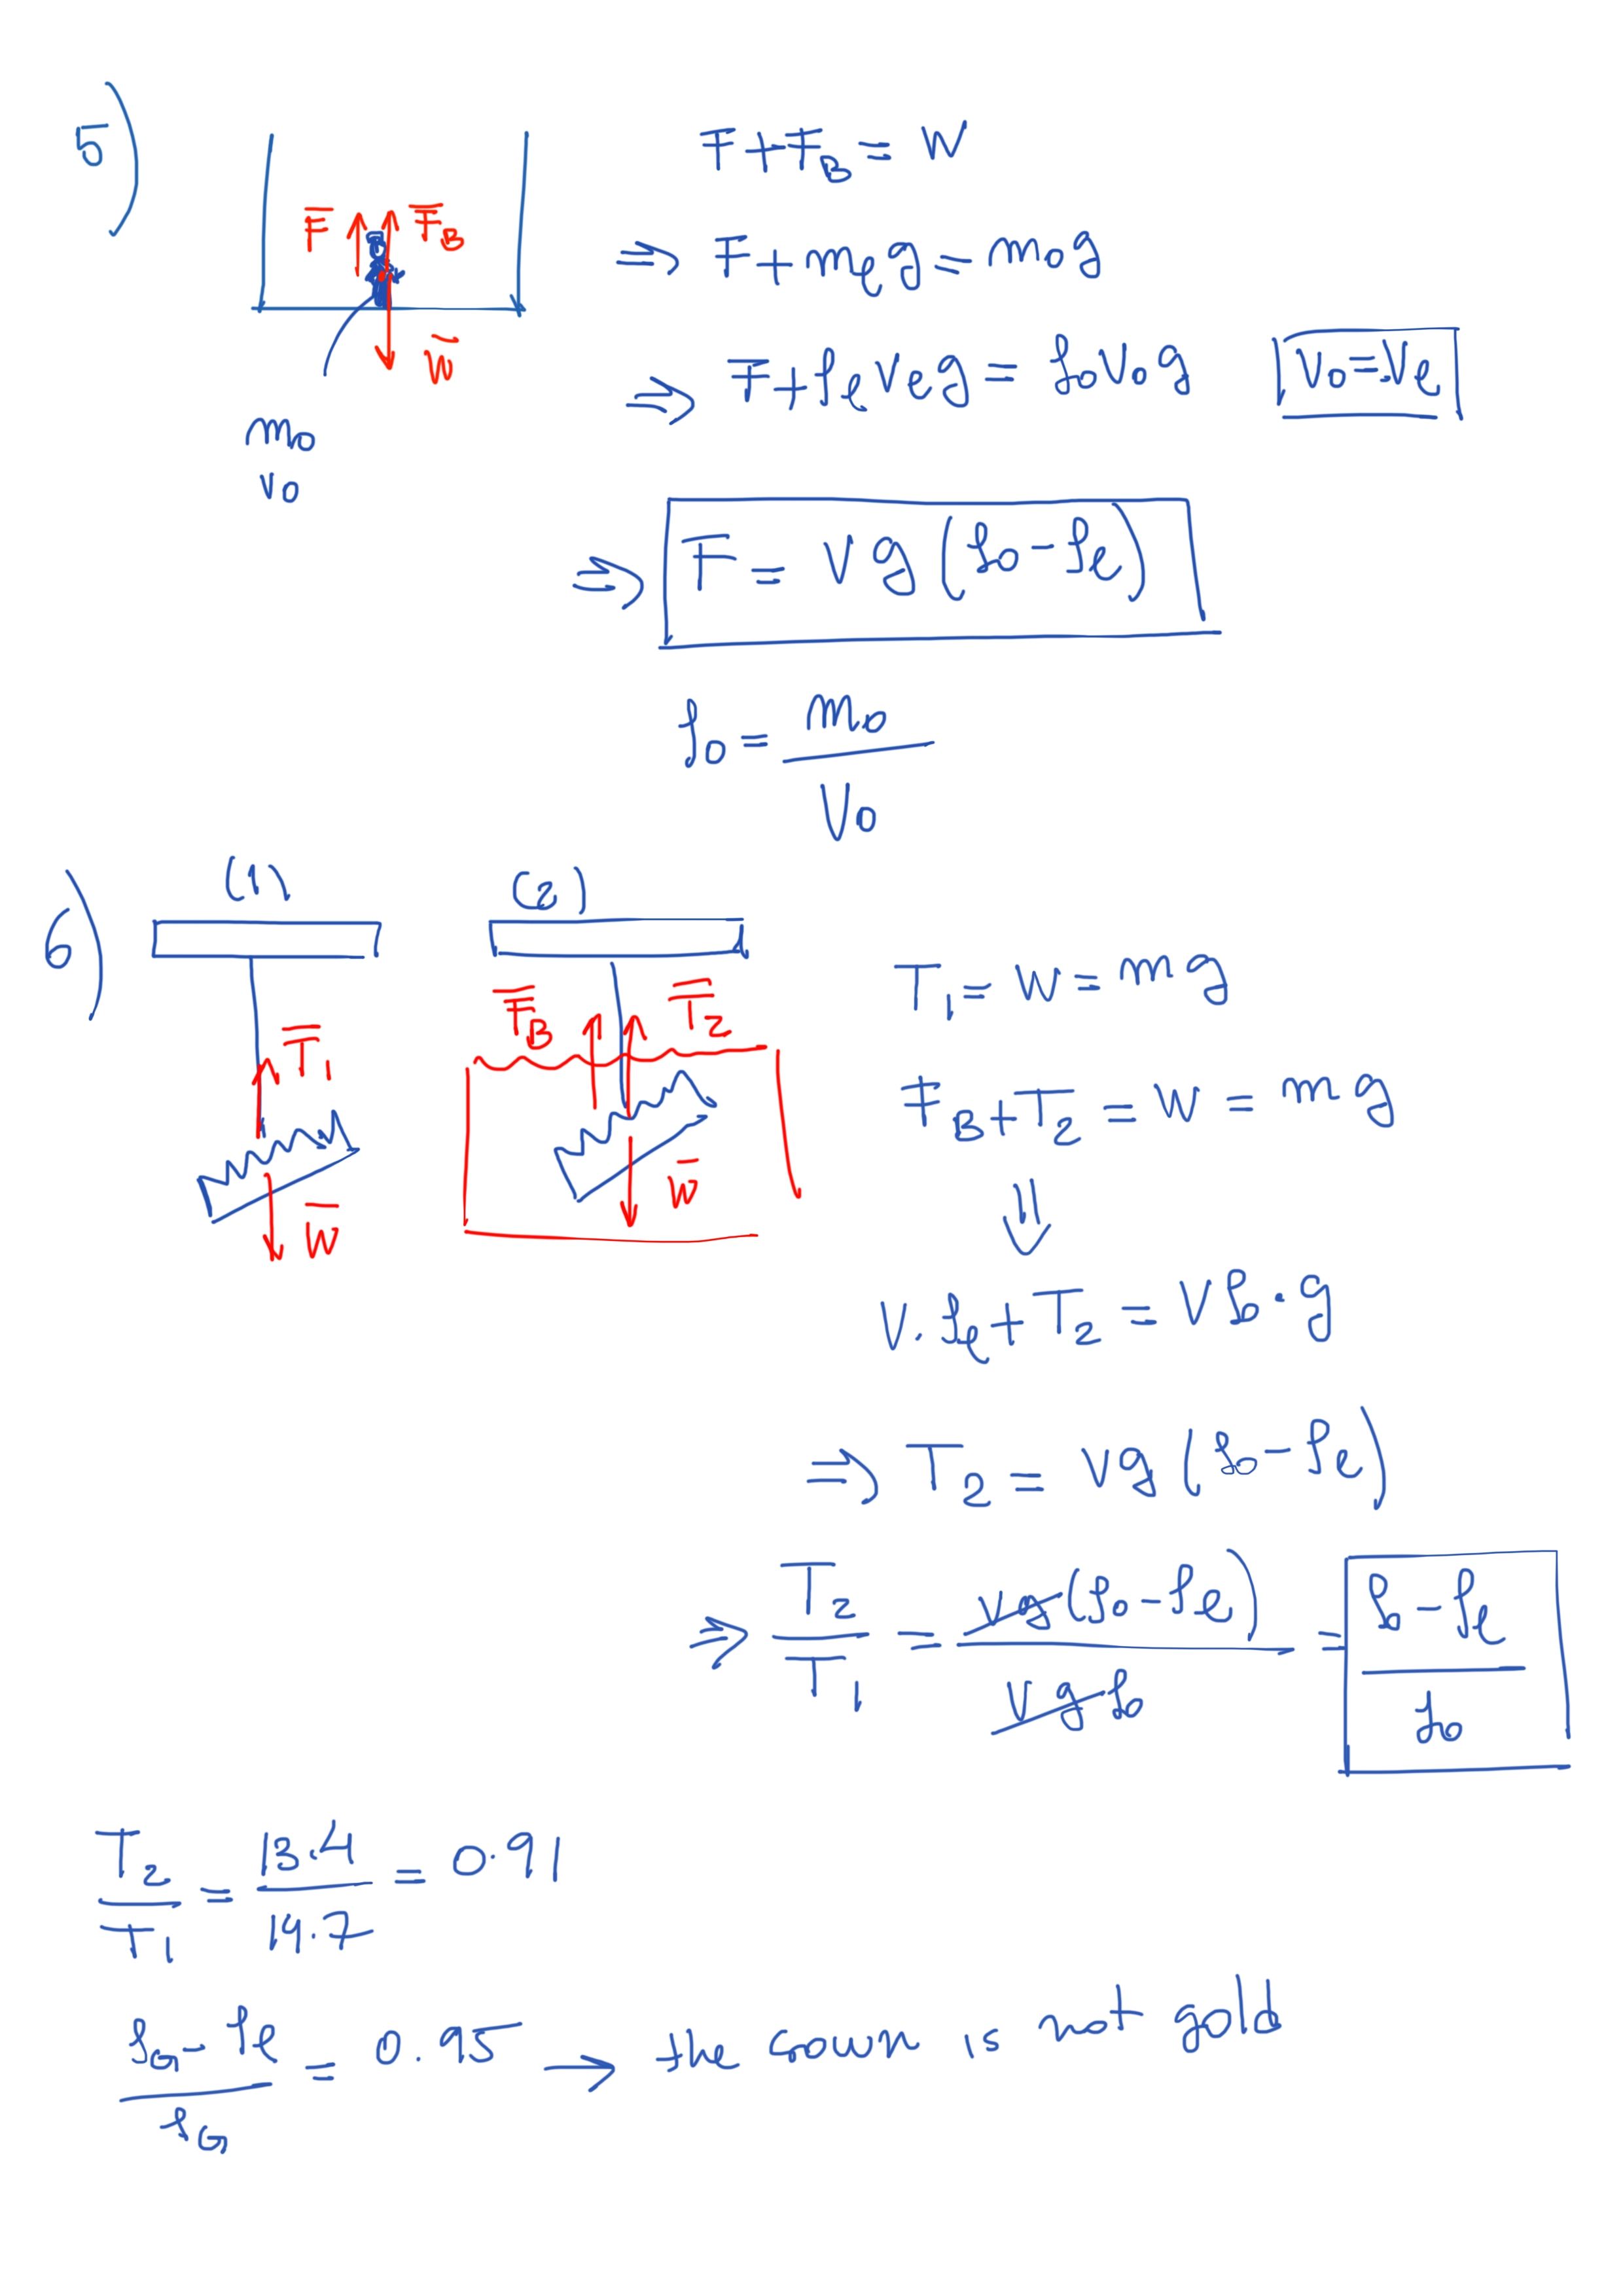 5)
F + F_B = W
F̄ F̄_B
⇒ F + m_ℓ g = m_o g
W̄
⇒ F + ρ_ℓ V_ℓ g = ρ_o V_o g V_o = V_ℓ
m_o
V_o
⇒ F = V g (ρ_o − ρ_ℓ)
ρ_o = m_o / V_o
6)
(1) (2)
T_1 = W = mg
F̄_B T̄_2
T̄_1
F_B + T_2 = W = mg
W̄ W̄
⇓
V . ρ_ℓ + T_2 = V ρ_o . g
⇒ T_2 = Vg (ρ_o − ρ_ℓ)
⇒ T_2 / T_1 = Vg (ρ_o − ρ_ℓ) / Vg ρ_o = ρ_o − ρ_ℓ / ρ_o
T_2 / T_1 = 13.4 / 14.7 = 0.91
ρ_G − ρ_ℓ / ρ_G = 0.95 → the crown is not gold